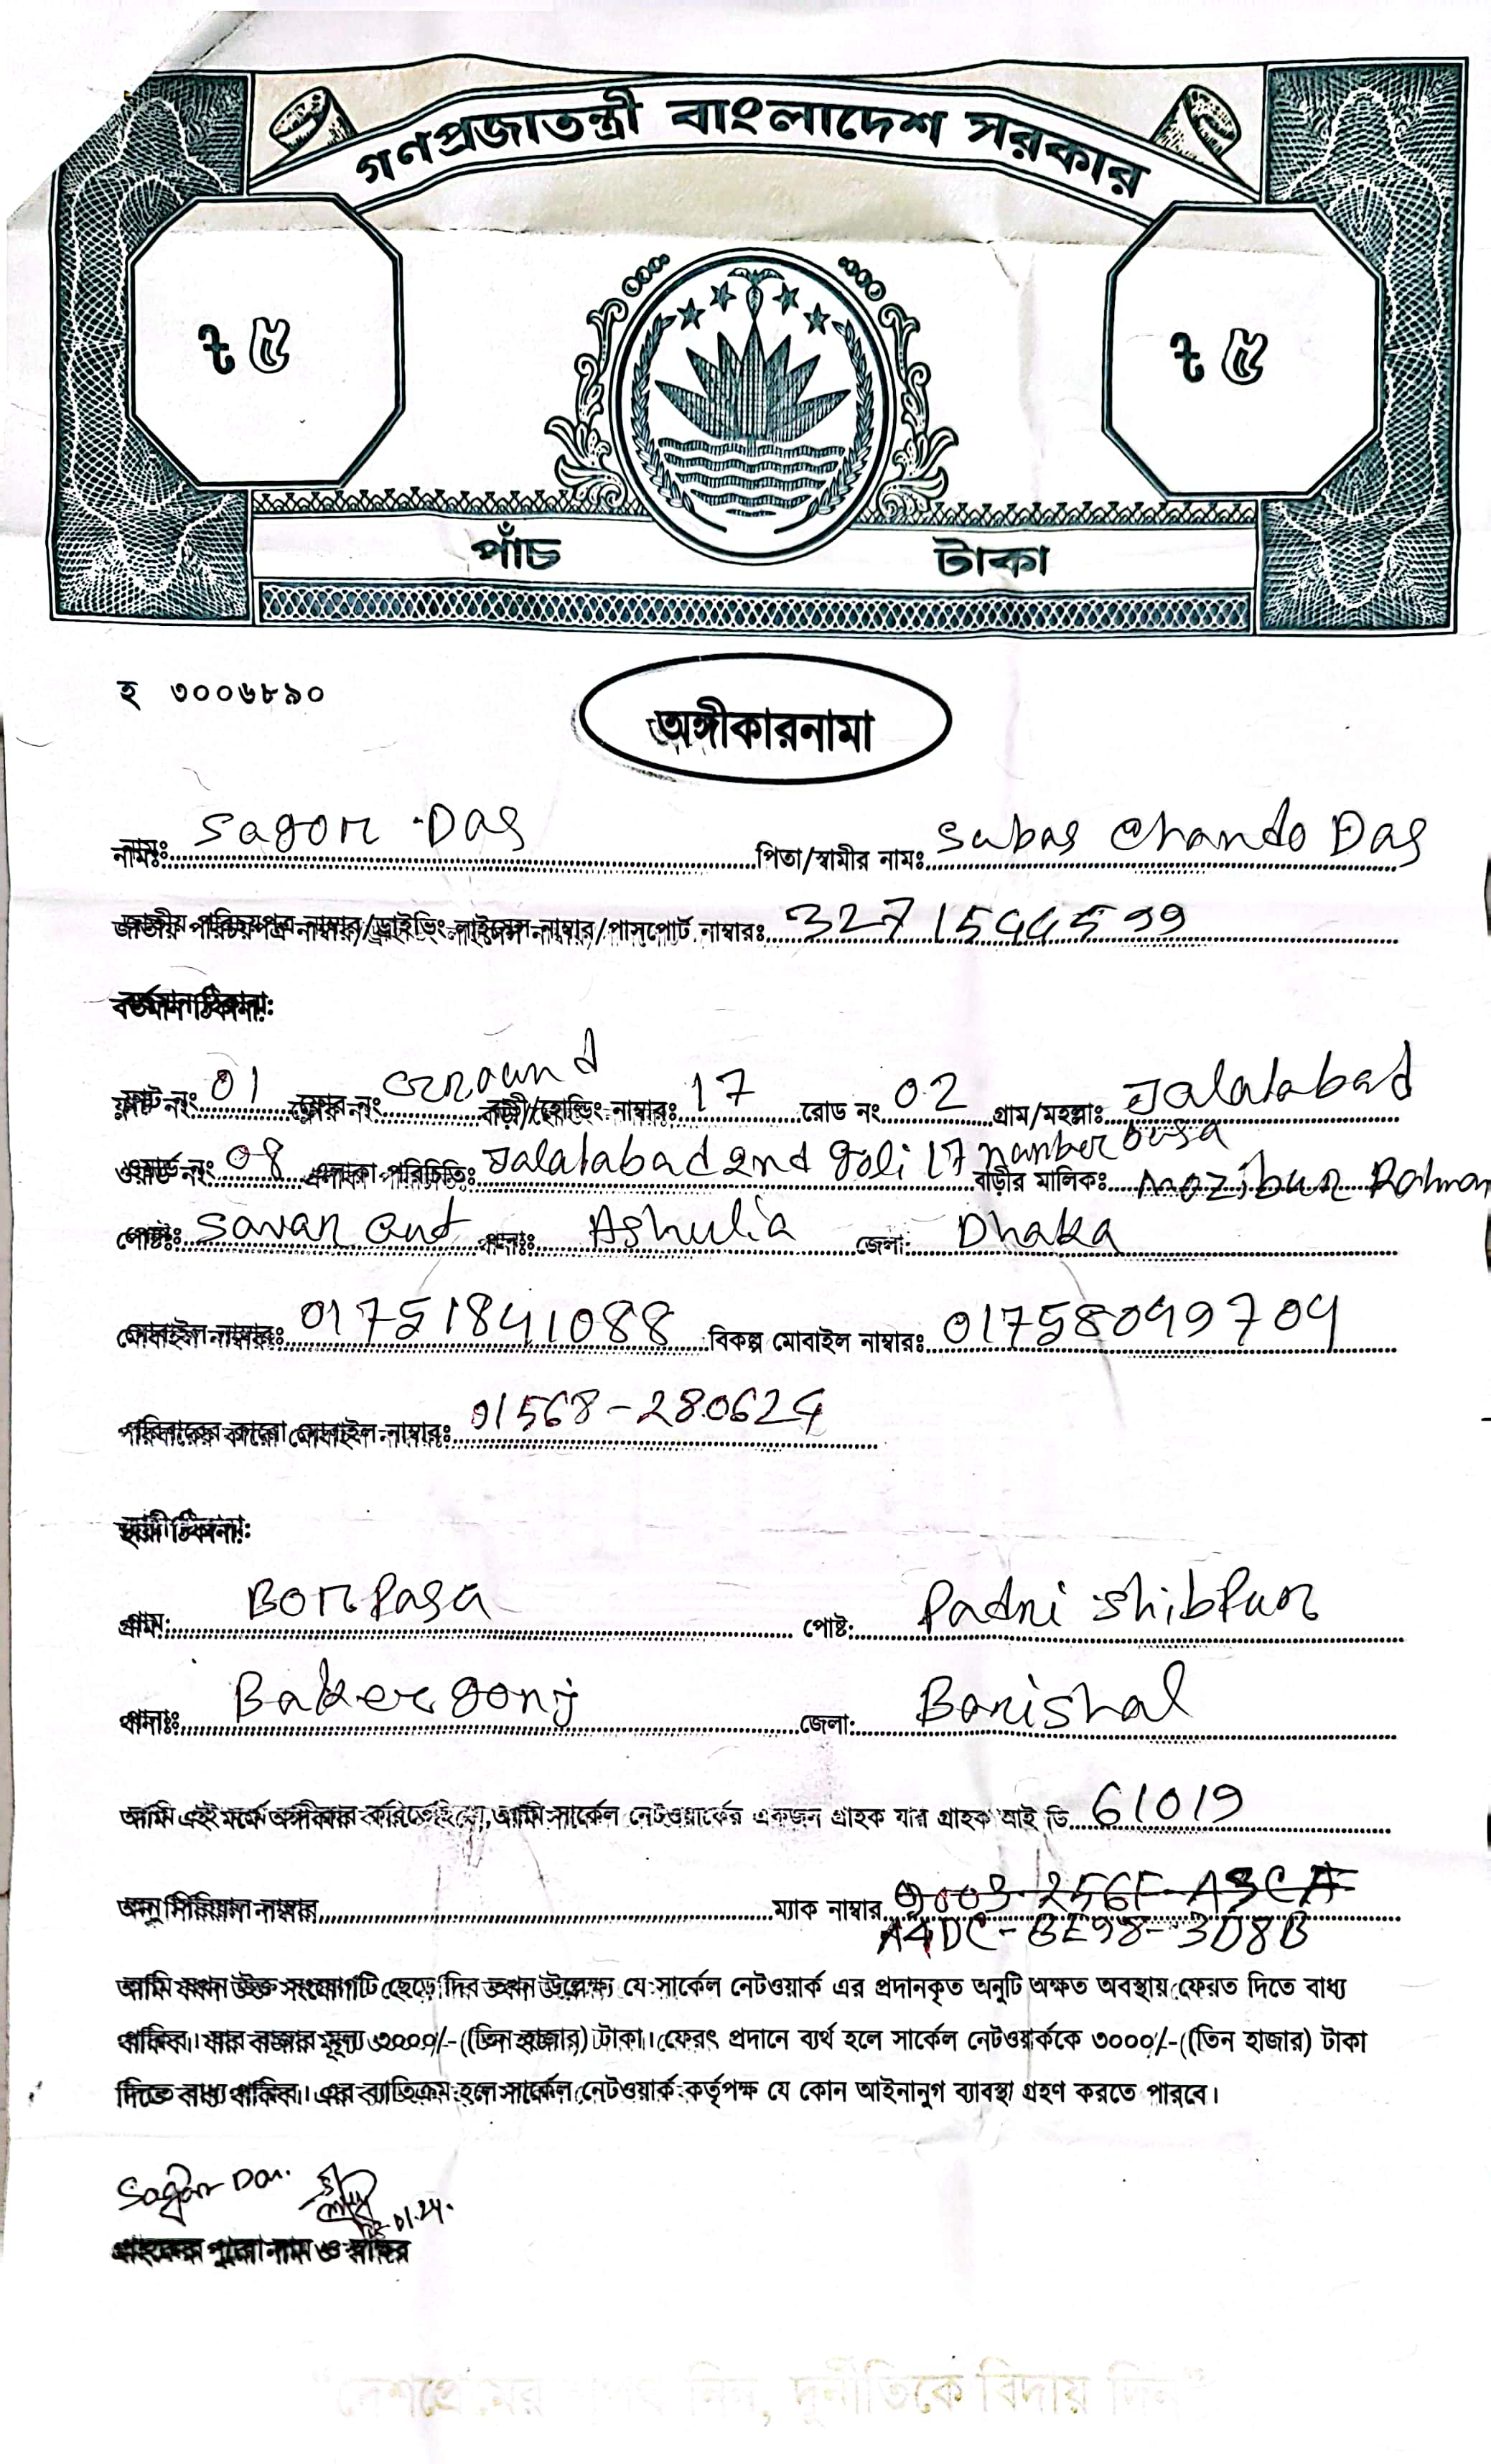 গণপ্রজাতন্ত্রী বাংলাদেশ সরকার
৳ ৫ ৳ ৫
পাঁচ টাকা
হ ৩০০৬৮৯০
অঙ্গীকারনামা
নামঃ Sagor Das পিতা/স্বামীর নামঃ Subas Chando Das
জাতীয় পরিচয়পত্র নাম্বার/ড্রাইভিং লাইসেন্স নাম্বার/পাসপোর্ট নাম্বারঃ 3271544599
বর্তমান ঠিকানা:
ফ্ল্যাট নং 01 ফ্লোর নং Ground বাড়ী/হোল্ডিং নাম্বারঃ 17 রোড নং 02 গ্রাম/মহল্লাঃ Jalalabad
ওয়ার্ড নং 08 এলাকা পরিচিতিঃ Jalalabad 2nd Goli 17 number basa বাড়ীর মালিকঃ Mozibur Rahman
পোষ্টঃ Savar Cant থানাঃ Ashulia জেলা: Dhaka
মোবাইল নাম্বারঃ 01751841088 বিকল্প মোবাইল নাম্বারঃ 01758099709
পরিবারের কারো মোবাইল নাম্বারঃ 01568-280624
স্থায়ী ঠিকানা:
গ্রাম: Borpasa পোষ্ট: Padri Shibpur
থানাঃ Bakergonj জেলা: Barishal
আমি এই মর্মে অঙ্গীকার করিতেছি যে, আমি সার্কেল নেটওয়ার্কের একজন গ্রাহক যার গ্রাহক আই ডি 61019
অনু সিরিয়াল নাম্বার ম্যাক নাম্বার
A4DC-BE98-3D8B
আমি যখন উক্ত সংযোগটি ছেড়ে দিব তখন উল্লেক্ষ্য যে সার্কেল নেটওয়ার্ক এর প্রদানকৃত অনুটি অক্ষত অবস্থায় ফেরত দিতে বাধ্য
থাকিব। যার বাজার মূল্য ৩০০০/-(তিন হাজার) টাকা। ফেরৎ প্রদানে ব্যর্থ হলে সার্কেল নেটওয়ার্ককে ৩০০০/-(তিন হাজার) টাকা
দিতে বাধ্য থাকিব। এর ব্যাতিক্রম হলে সার্কেল নেটওয়ার্ক কর্তৃপক্ষ যে কোন আইনানুগ ব্যাবস্থা গ্রহণ করতে পারবে।
Sagor Das
গ্রাহকের পুরো নাম ও স্বাক্ষর
"দেশপ্রেমের শপথ নিন, দুর্নীতিকে বিদায় দিন"